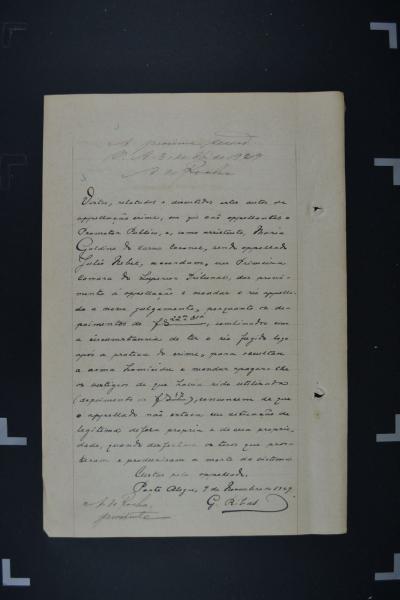 A proxima sessão
P. A. 3 de 1929
A. da Rocha
Vistos, relatados e discutidos estes autos de
appellação crime, em que são appellantes o
Promotor Publico e, como assistente, Maria
Galdina do Carmo Coronel, sendo appellado
Julio Nebel, accordam, em Primeira
Camara do Superior Tribunal, dar provi-
mento á appellação e mandar o réo appella-
do a novo julgamento, porquanto os de-
poimentos de fs 22 31, combinados com
a circumstancia de ter o réo fugido logo
após a pratica do crime, para occultar
a arma homicida e mandar apagar-lhe
os vestigios de que havia sido utilisada
(depoimento de fs), convencem de que
o appellado não estava em situação de
legitima defesa propria e de sua proprie-
dade, quando desfechou os tiros que
e produziram a morte da victima.
Custas pelo appellado.
Porto Alegre, 9 de Novembro de 1929
A. da Rocha,
presidente
G. Ribas